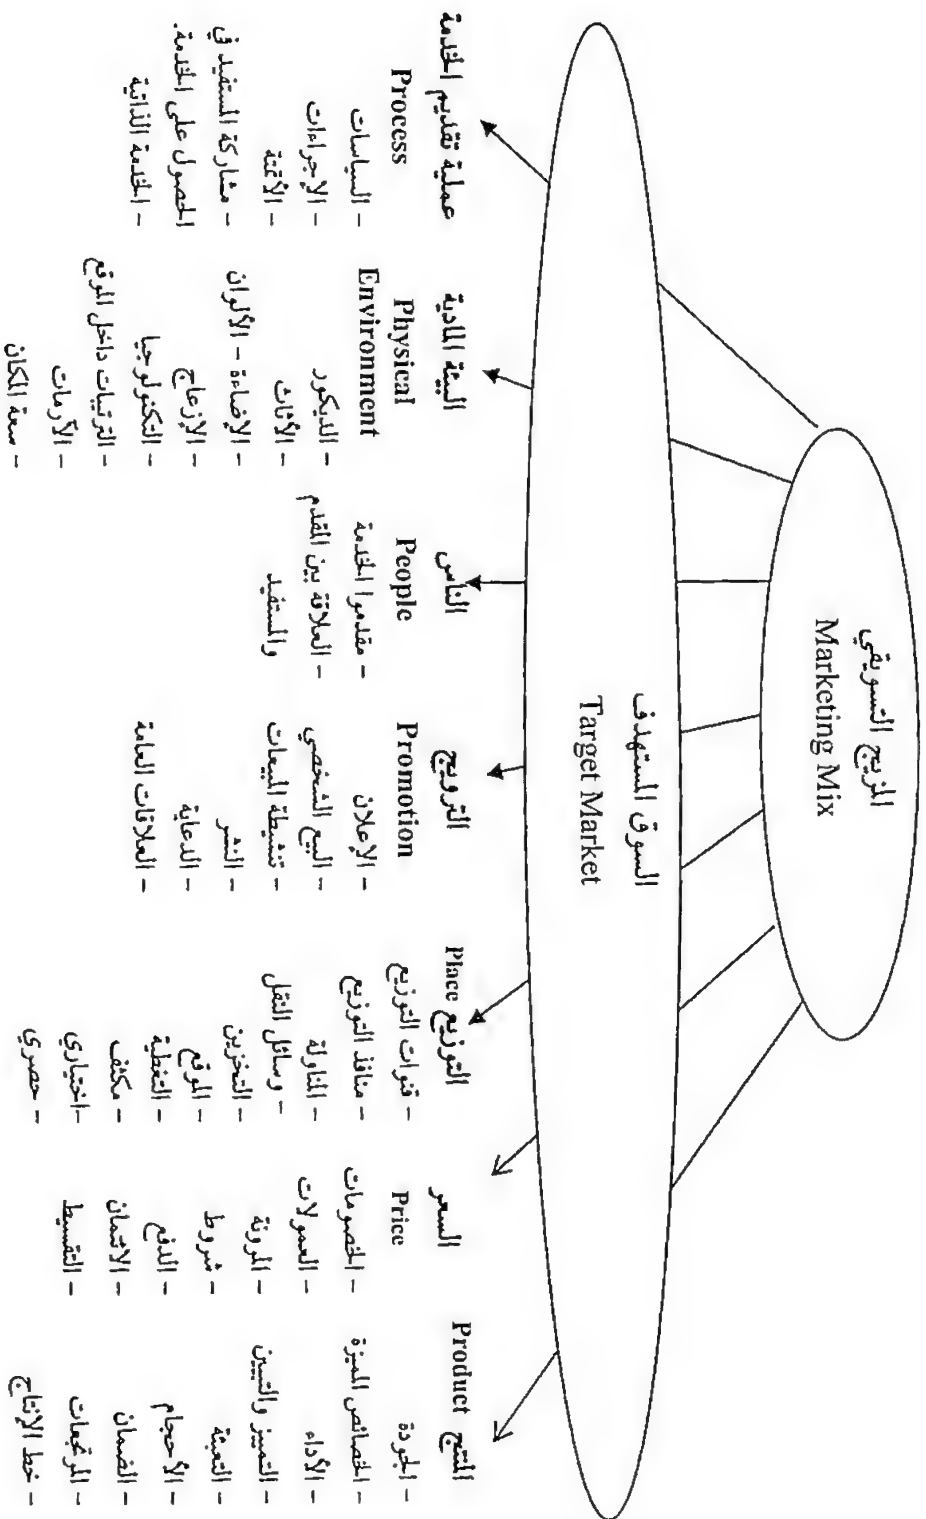 المزيج التسويقي
Marketing Mix
السوق المستهدف
Target Market
المنتج Product
- الجودة
- الخصائص المميزة
- الأداء
- التمييز والتبيين
- التعبئة
- الأحجام
- الضمان
- المرتجعات
- خط الإنتاج
السعر
Price
- الخصومات
- العمولات
- المرونة
- شروط
- الدفع
- الائتمان
- التقسيط
التوزيع Place
- قنوات التوزيع
- منافذ التوزيع
- المناولة
- وسائل النقل
- التخزين
- الموقع
- التغطية
- مكثف
-اختياري
- حصري
الترويج
Promotion
- الإعلان
- البيع الشخصي
- تنشيطة المبيعات
- النشر
- الدعاية
- العلاقات العامة
الناس
People
- مقدموا الخدمة
- العلاقة بين المقدم
والمستفيد
البيئة المادية
Physical
Environment
- الديكور
- الأثاث
- الإضاءة - الألوان
- الإزعاج
- التكنولوجيا
- الترتيبات داخل الموقع
- الآرمات
- سعة المكان
عملية تقديم الخدمة
Process
- السياسات
- الإجراءات
- الأتمتة
- مشاركة المستفيد في
الحصول على الخدمة.
- الخدمة الذاتية